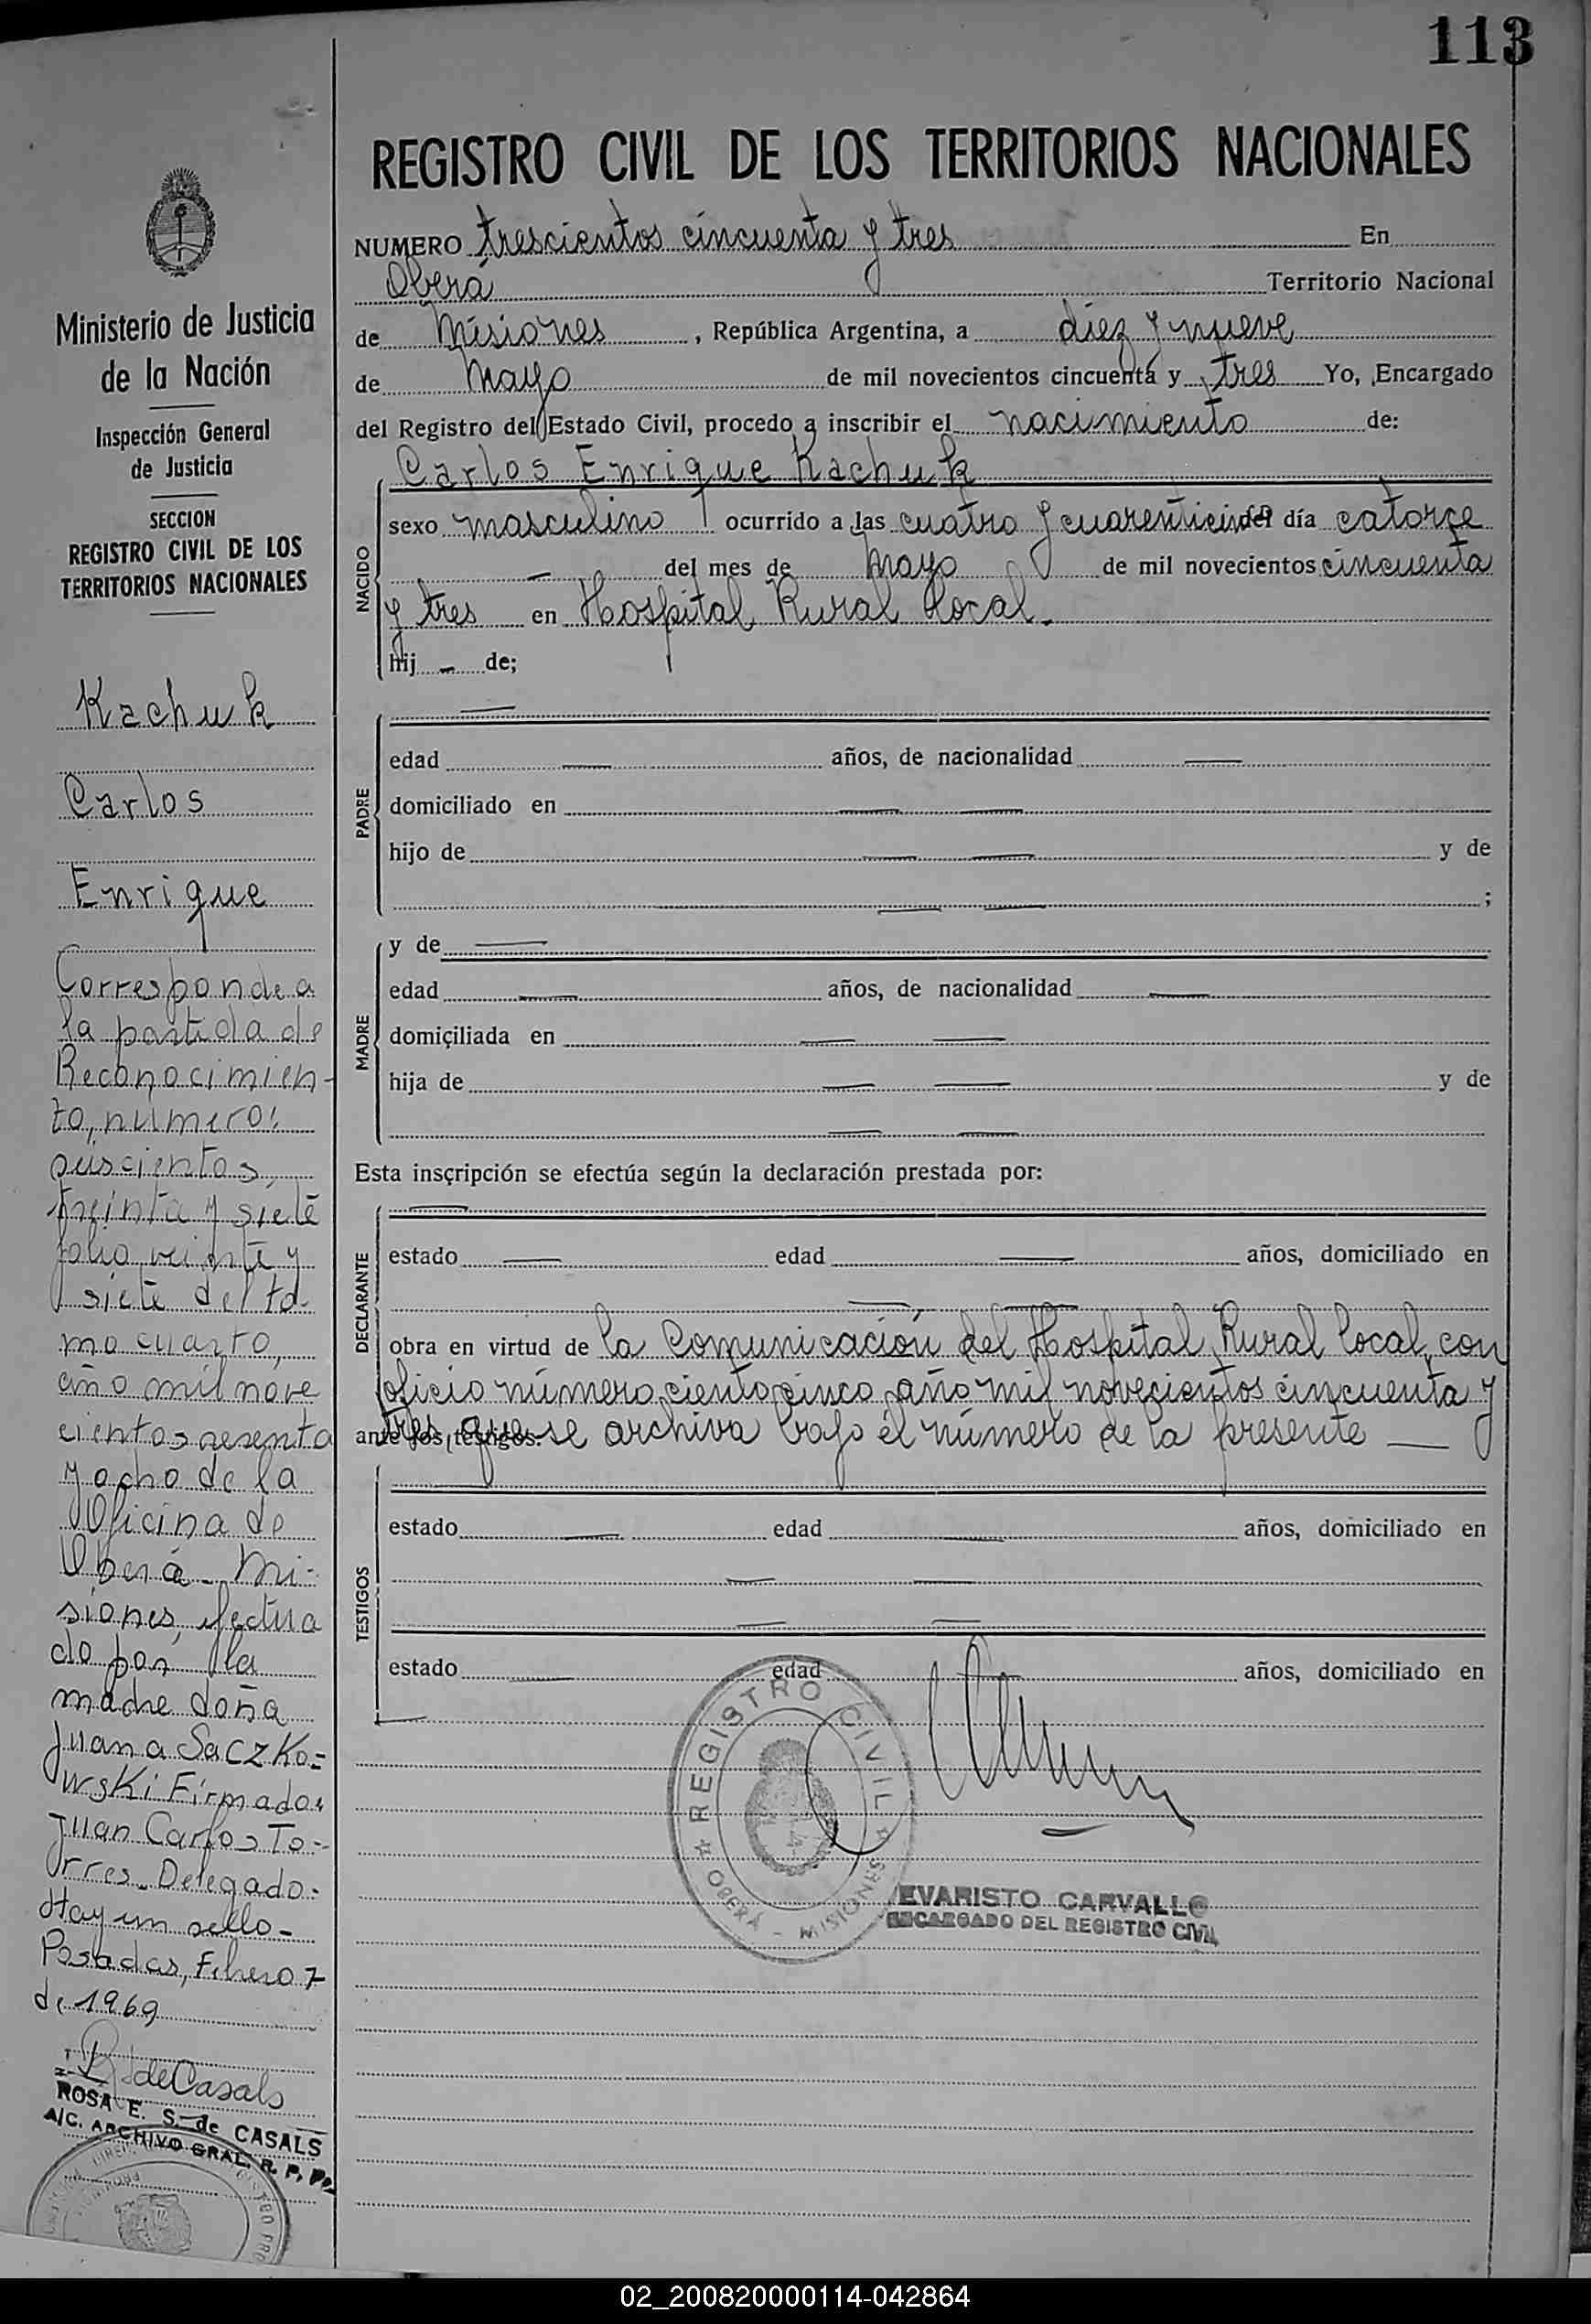 113
REGISTRO CIVIL DE LOS TERRITORIOS NACIONALES
NUMERO trescientos cincuenta y tres En
Oberá Territorio Nacional
de Misiones, República Argentina, a diez y nueve
de Mayo de mil novecientos cincuenta y tres Yo, Encargado
del Registro del Estado Civil, procedo a inscribir el nacimiento de:
Carlos Enrique Kachuk
NACIDO
sexo masculino ocurrido a las cuatro y cuarenticinco del día catorce
— del mes de Mayo de mil novecientos cincuenta
y tres en Hospital Rural Local.
hij - de;
PADRE
—
edad — años, de nacionalidad —
domiciliado en — —
hijo de — — y de
— — ;
MADRE
y de —
edad — años, de nacionalidad —
domiciliada en — —
hija de — — y de
— —
Esta inscripción se efectúa según la declaración prestada por:
DECLARANTE
—
estado — edad — años, domiciliado en
— —
obra en virtud de la Comunicación del Hospital Rural Local, con
oficio número ciento cinco año mil novecientos cincuenta y
ante los testigos: tres que se archiva bajo el número de la presente —
TESTIGOS
estado — edad — años, domiciliado en
— —
— —
estado — edad — años, domiciliado en
—
REGISTRO CIVIL
OBERÁ - MISIONES
EVARISTO CARVALLO
ENCARGADO DEL REGISTRO CIVIL
Ministerio de Justicia
de la Nación
Inspección General
de Justicia
SECCION
REGISTRO CIVIL DE LOS
TERRITORIOS NACIONALES
Kachuk
Carlos
Enrique
Corresponde a
la partida de
Reconocimien-
to, número:
seiscientos
treinta y siete
folio veinte y
siete del to-
mo cuarto,
año mil nove
cientos sesenta
y ocho de la
Oficina de
Oberá - Mi-
siones, efectua
do por la
madre doña
Juana Saczko=
wski Firmado:
Juan Carlos To-
rres. Delegado.
Hay un sello-
Posadas, Febrero 7
de 1969
de Casals
ROSA E. S. de CASALS
A/C. ARCHIVO GRAL. R. P.
02_200820000114-042864